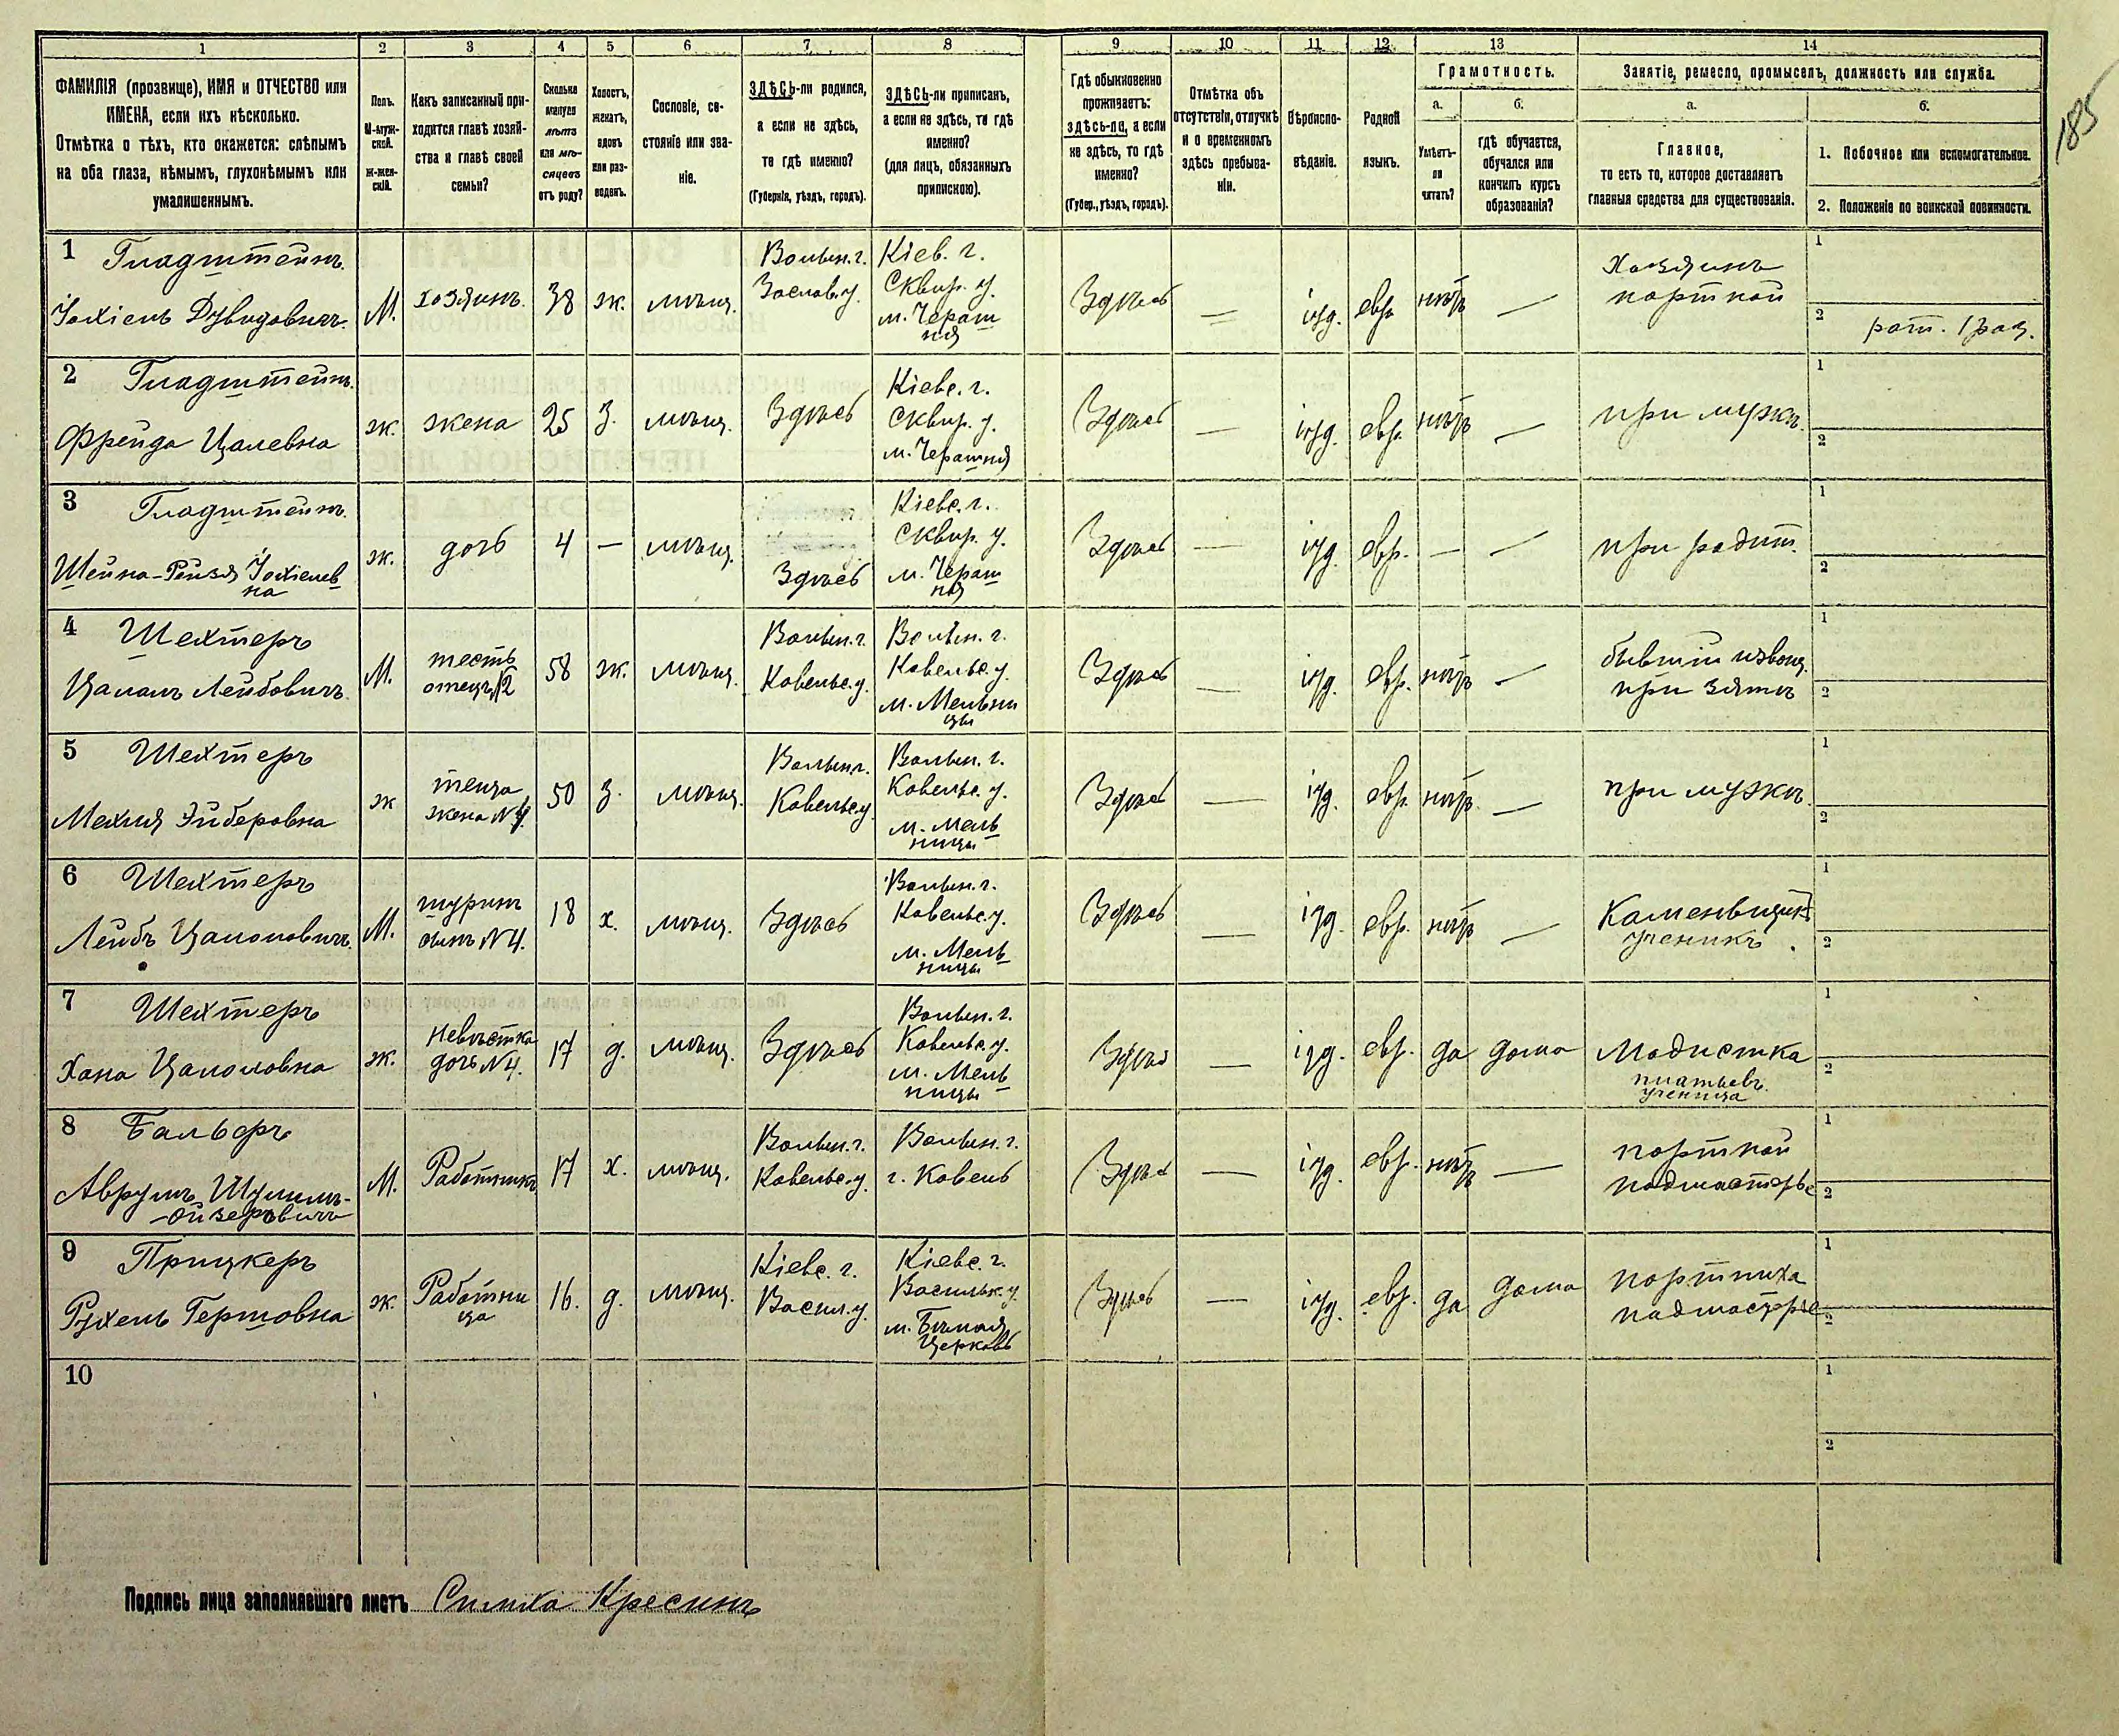 185
1 2 3 4 5 6 7 8 9 10 11 12 13 14
ФАМИЛІЯ (прозвище), ИМЯ и ОТЧЕСТВО или
ИМЕНА, если ихъ нѣсколько.
Отмѣтка о тѣхъ, кто окажется: слѣпымъ
на оба глаза, нѣмымъ, глухонѣмымъ или
умалишеннымъ.
Полъ.
М-муж-
ской.
Ж-жен-
скій.
Какъ записанный при-
ходится главѣ хозяй-
ства и главѣ своей
семьи?
Сколько
минуло
лѣтъ
или мѣ-
сяцевъ
отъ роду?
Холостъ,
женатъ,
вдовъ
или раз-
веденъ.
Сословіе, со-
стояніе или зва-
ніе.
ЗДѢСЬ-ли родился,
а если не здѣсь,
то гдѣ именно?
(Губернія, уѣздъ, городъ).
ЗДѢСЬ-ли приписанъ,
а если не здѣсь, то гдѣ
именно?
(для лицъ, обязанныхъ
припискою).
Гдѣ обыкновенно
проживаетъ:
здѣсь-ли, а если
не здѣсь, то гдѣ
именно?
(Губер., уѣздъ, городъ).
Отмѣтка объ
отсутствіи, отлучкѣ
и о временномъ
здѣсь пребыва-
ніи.
Вѣроиспо-
вѣданіе.
Родной
языкъ.
Грамотность.
а.
Умѣетъ-
ли
читать?
б.
гдѣ обучается,
обучался или
кончилъ курсъ
образованія?
Занятіе, ремесло, промыселъ, должность или служба.
а.
Главное,
то есть то, которое доставляетъ
главныя средства для существованія.
б.
1. Побочное или вспомогательное.
2. Положеніе по воинской повинности.
1 Гладштейнъ
Іохіель Дувидовичъ
М.
хозяинъ
38
ж.
мѣщ.
Волын. г.
Заслав. у.
Кіев. г.
Сквир. у.
м. Чераш
ня
Здѣсь
—
іуд.
евр.
нѣтъ
—
Хозяинъ
портной
1
2 рат. 1 раз.
2 Гладштейнъ
Фрейда Цалевна
ж.
жена
25
з.
мѣщ.
Здѣсь
Кіевс. г.
Сквир. у.
м. Черашня
Здѣсь
—
іуд.
евр.
нѣтъ
—
при мужѣ
1
2
3 Гладштейнъ
Шейна-Рейзя Іохіелев
на
ж.
дочь
4
—
мѣщ.
Здѣсь
Кіевс. г.
Сквир. у.
м. Чераш
ня
Здѣсь
—
іуд.
евр.
—
—
при родит.
1
2
4 Шехтеръ
Цалалъ Лейбовичъ
М.
тесть
отецъ №2
58
ж.
мѣщ.
Волын. г.
Ковельс. у.
Волын. г.
Ковельс. у.
м. Мельни
цы
Здѣсь
іуд.
евр.
нѣтъ
—
бывшій извощ.
при зятѣ
1
2
5 Шехтеръ
Мехля Эйберовна
ж
теща
жена №4
50
з.
мѣщ.
Волын. г.
Ковельс. у.
Волын. г.
Ковельс. у.
м. Мель
ницы
Здѣсь
—
іуд.
евр.
нѣтъ
—
при мужѣ.
1
2
6 Шехтеръ
Лейбъ Цалоловичъ
М.
шуринъ
сынъ №4.
18
х.
мѣщ.
Здѣсь
Волын. г.
Ковельс. у.
м. Мель
ницы
Здѣсь
—
іуд.
евр.
нѣтъ
—
Каменьщикъ
ученикъ
1
2
7 Шехтеръ
Хана Цалоловна
ж.
невѣстка
дочь №4.
17
д.
мѣщ.
Здѣсь
Волын. г.
Ковельс. у.
м. Мель
ницы
Здѣсь
—
іуд.
евр.
да
дома
Модистка
платьевъ
ученица
1
2
8 Бальберъ
Аврумъ Шулимъ-
-Ойзеровичъ
М.
Работникъ
17
х.
мѣщ.
Волын. г.
Ковельс. у.
Волын. г.
г. Ковель
Здѣсь
—
іуд.
евр.
нѣтъ
—
портной
подмастерье
1
2
9 Прицкеръ
Рухель Гершовна
ж.
Работни
ца
16.
д.
мѣщ.
Кіевс. г.
Васил. у.
Кіевс. г.
Васильк. у.
м. Бѣлая
Церковь
Здѣсь
—
іуд.
евр.
да
дома
портниха
подмастерье
1
2
10
1
2
Подпись лица заполнявшаго листъ Симха Кресинъ